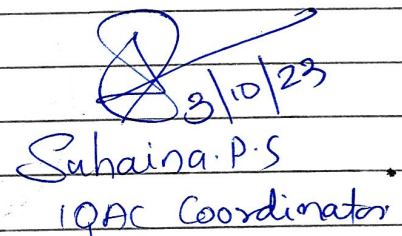 3/10/23
Suhaina.P.S
IQAC Coordinator